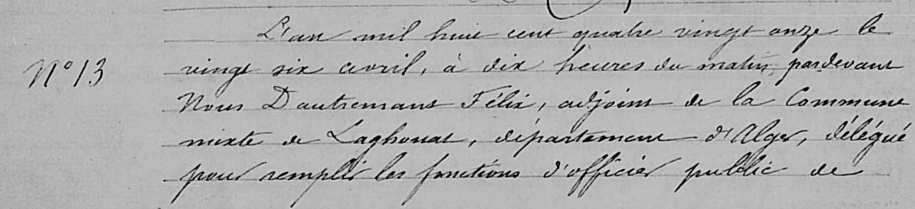 L'an mil huit cent quatre vingt onze le
N° 13 vingt six avril, à dix heures du matin, pardevant
Nous Dautremant Félix, adjoint de la Commune
mixte de Laghouat, département d'Alger, délégué
pour remplir les fonctions d'officier public de